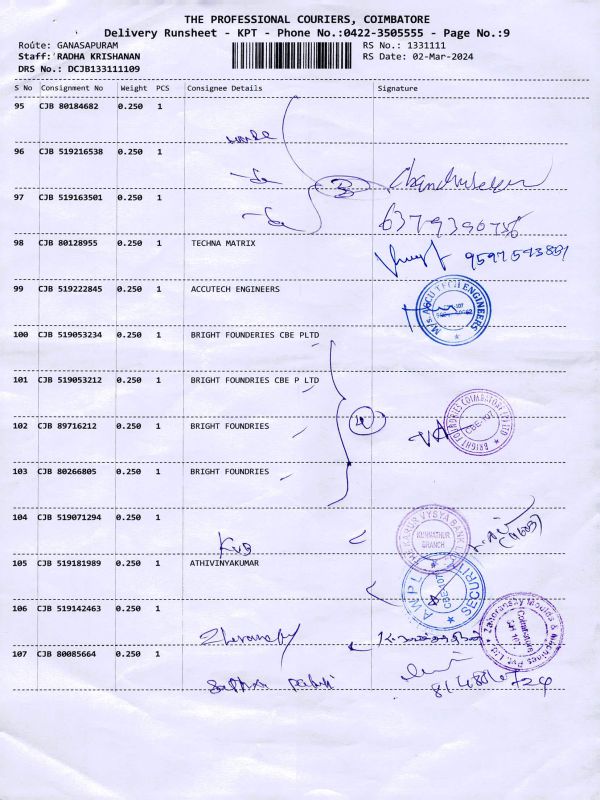 THE PROFESSIONAL COURIERS, COIMBATORE
Delivery Runsheet - KPT - Phone No.:0422-3505555 - Page No.:9
Route: GANASAPURAM RS No.: 1331111
Staff: RADHA KRISHANAN RS Date: 02-Mar-2024
DRS No.: DCJB133111109
S No Consignment No Weight PCS Consignee Details Signature
95 CJB 80184682 0.250 1
96 CJB 519216538 0.250 1
97 CJB 519163501 0.250 1
98 CJB 80128955 0.250 1 TECHNA MATRIX
99 CJB 519222845 0.250 1 ACCUTECH ENGINEERS
M/s ACCU TECH ENGINEERS
100 CJB 519053234 0.250 1 BRIGHT FOUNDERIES CBE PLTD
101 CJB 519053212 0.250 1 BRIGHT FOUNDRIES CBE P LTD
102 CJB 89716212 0.250 1 BRIGHT FOUNDRIES
BRIGHT FOUNDRIES COIMBATORE
103 CJB 80266805 0.250 1 BRIGHT FOUNDRIES
104 CJB 519071294 0.250 1
KVB
THE KARUR VYSYA BANK
BRANCH
105 CJB 519181989 0.250 1 ATHIVINYAKUMAR
A.W.P.L SECURITY
106 CJB 519142463 0.250 1
107 CJB 80085664 0.250 1